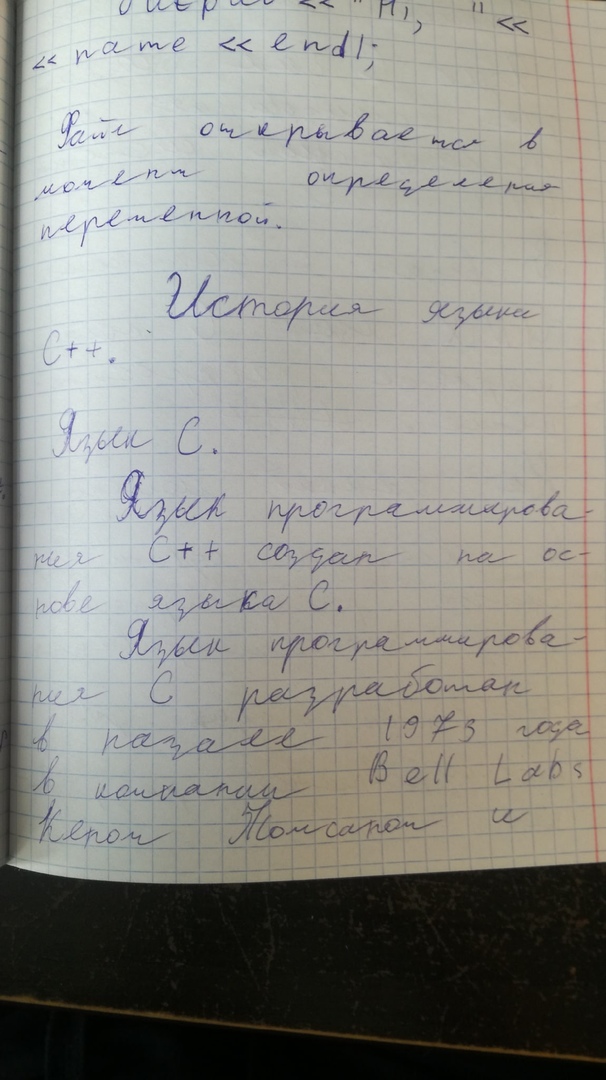 << "Hi, " <<
<< name << endl;
Файл открывается в
момент определения
переменной.
История языка
C++.
Язык C.
Язык программирова-
ния C++ создан на ос-
нове языка C.
Язык программирова-
ния C разработан
в начале 1973 года
в компании Bell Labs
Кеном Томсаном и